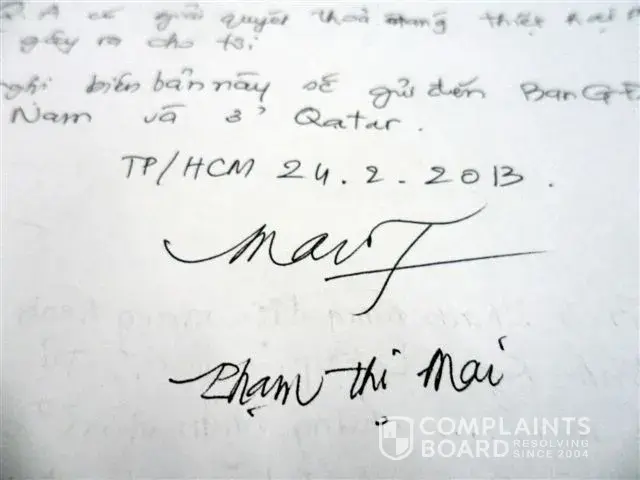 Q.A có giải quyết thoả đáng thiệt hại
gây ra cho tôi
nghi biên bản này sẽ gửi đến Ban GĐ
Nam và ở Qatar.
TP/HCM 24.2.2013.
Mai
Phạm Thị Mai
COMPLAINTS
BOARD RESOLVING
SINCE 2004